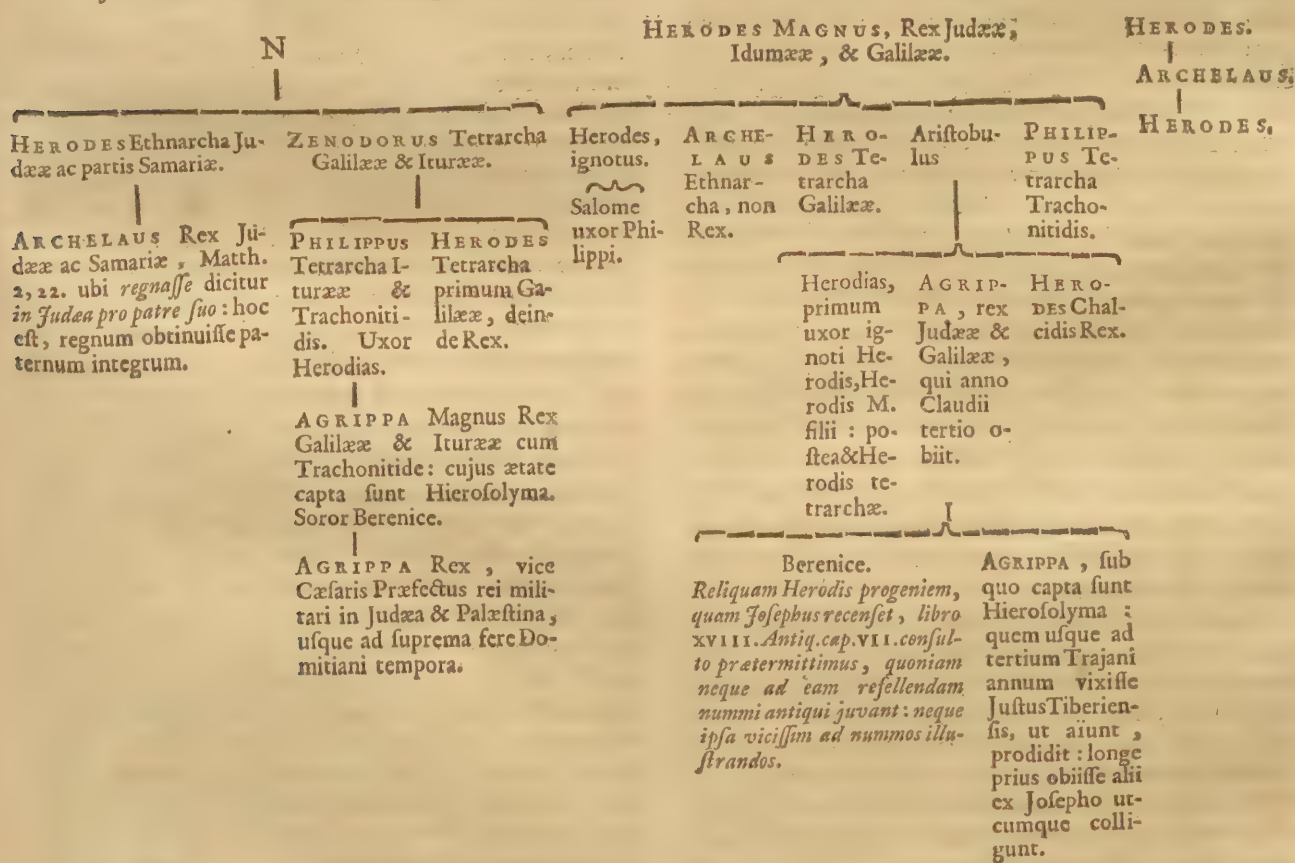 N
HERODES Ethnarcha Ju-
dææ ac partis Samariæ.
ARCHELAUS Rex Ju-
dææ ac Samariæ, Matth.
2, 22. ubi regnaſſe dicitur
in Judæa pro patre ſuo : hoc
eſt, regnum obtinuiſſe pa-
ternum integrum.
ZENODORUS Tetrarcha
Galilææ & Iturææ.
PHILIPPUS
Tetrarcha I-
turææ &
Trachoniti-
dis. Uxor
Herodias.
HERODES
Tetrarcha
primum Ga-
lilææ, dein-
de Rex.
AGRIPPA Magnus Rex
Galilææ & Iturææ cum
Trachonitide : cujus ætate
capta ſunt Hieroſolyma.
Soror Berenice.
AGRIPPA Rex, vice
Cæſaris Præfectus rei mili-
tari in Judæa & Palæſtina,
uſque ad ſuprema fere Do-
mitiani tempora.
HERODES MAGNUS, Rex Judææ,
Idumææ, & Galilææ.
Herodes,
ignotus.
Salome
uxor Phi-
lippi.
ARCHE-
LAUS
Ethnar-
cha, non
Rex.
HERO-
DES Te-
trarcha
Galilææ.
Ariſtobu-
lus
PHILIP-
PUS Te-
trarcha
Tracho-
nitidis.
Herodias,
primum
uxor ig-
noti He-
rodis, He-
rodis M.
filii : po-
ſtea & He-
rodis te-
trarchæ.
AGRIP-
PA, rex
Judææ &
Galilææ,
qui anno
Claudii
tertio o-
biit.
HERO-
DES Chal-
cidis Rex.
Berenice.
Reliquam Herodis progeniem,
quam Joſephus recenſet, libro
XVIII. Antiq. cap. VII. conſul-
to prætermittimus, quoniam
neque ad eam refellendam
nummi antiqui juvant : neque
ipſa viciſſim ad nummos illu-
ſtrandos.
AGRIPPA, ſub
quo capta ſunt
Hieroſolyma :
quem uſque ad
tertium Trajani
annum vixiſſe
Juſtus Tiberien-
ſis, ut aïunt,
prodidit : longe
prius obiiſſe alii
ex Joſepho ut-
cumque colli-
gunt.
HERODES.
ARCHELAUS.
HERODES.